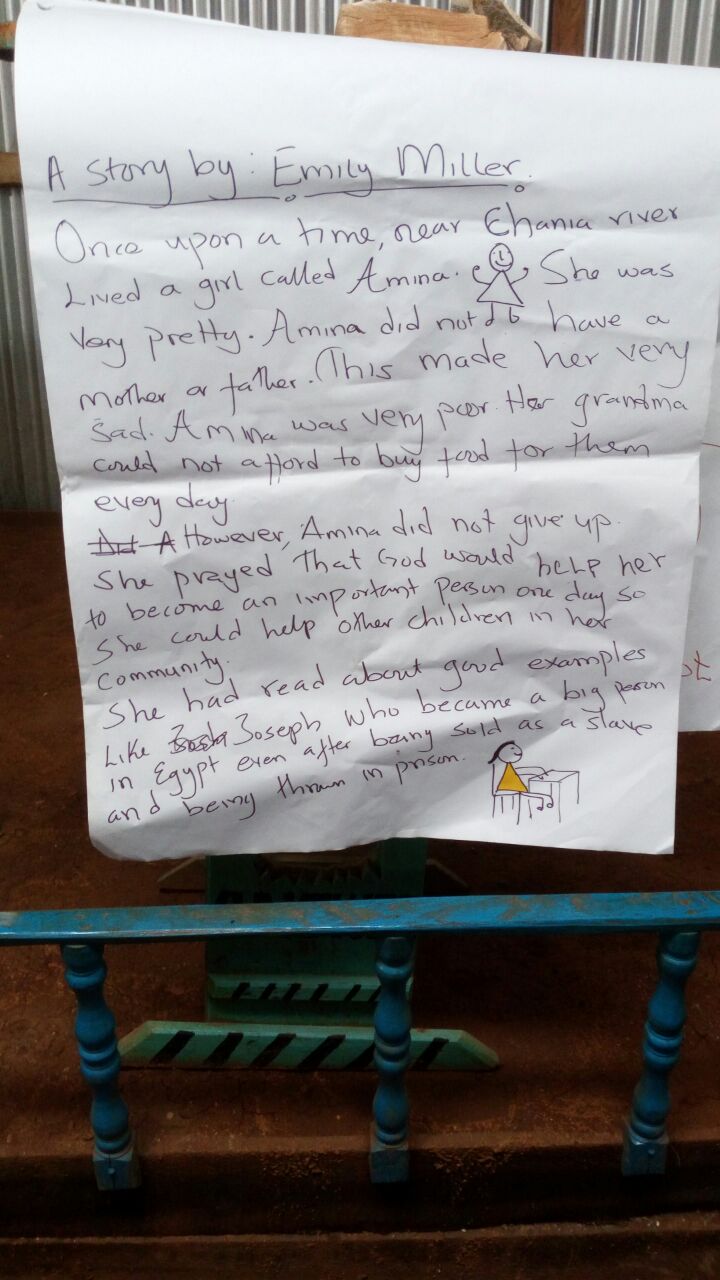 A story by: Emily Miller.
Once upon a time, near Chania river
Lived a girl called Amina. She was
very pretty. Amina did not have a
mother or father. This made her very
sad. Amina was very poor. Her grandma
could not afford to buy food for them
every day.
However, Amina did not give up.
She prayed That God would help her
to become an important person one day so
She could help other children in her
Community.
She had read about good examples
Like Joseph who became a big person
in Egypt even after being sold as a slave
and being thrown in prison.
st